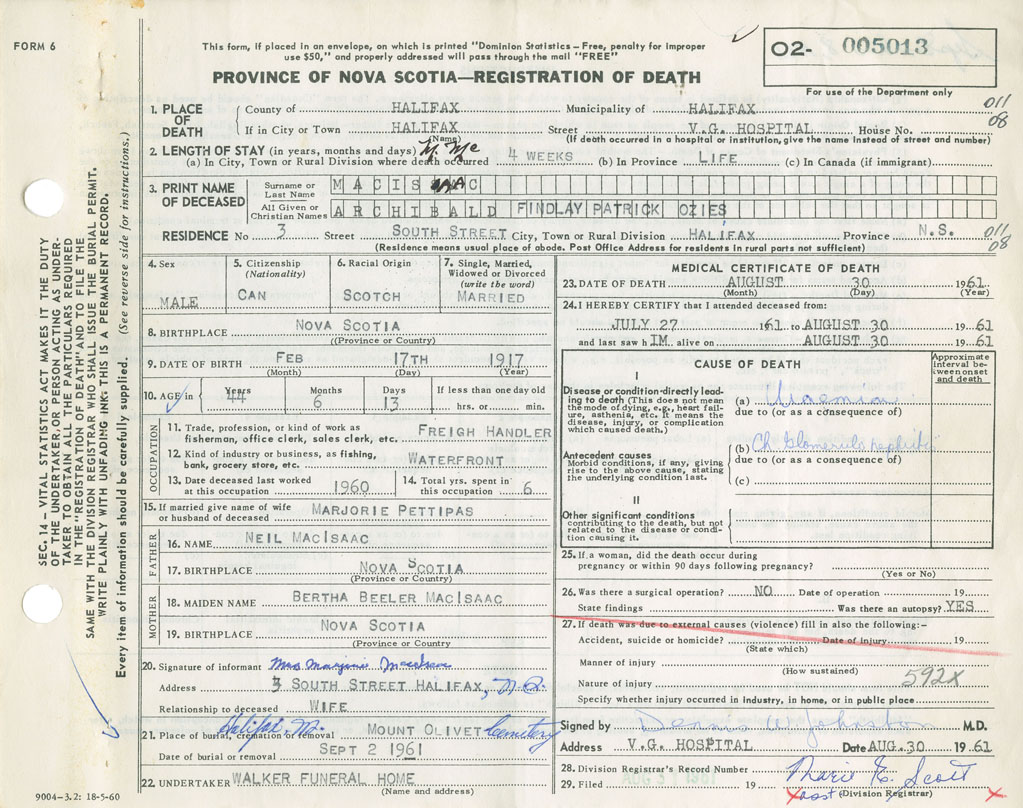 FORM 6
This form, if placed in an envelope, on which is printed "Dominion Statistics — Free, penalty for improper
use $50," and properly addressed will pass through the mail "FREE"
O2- 005013
PROVINCE OF NOVA SCOTIA—REGISTRATION OF DEATH
For use of the Department only
1. PLACE OF DEATH County of HALIFAX Municipality of HALIFAX 011
If in City or Town HALIFAX Street V.G. HOSPITAL House No. 08
(Name) (If death occurred in a hospital or institution, give the name instead of street and number)
2. LENGTH OF STAY (in years, months and days)
(a) In City, Town or Rural Division where death occurred 4 WEEKS (b) In Province LIFE (c) In Canada (if immigrant)
3. PRINT NAME OF DECEASED Surname or Last Name MACISAAC
All Given or Christian Names ARCHIBALD FINDLAY PATRICK OZIES
RESIDENCE No 3 Street SOUTH STREET City, Town or Rural Division HALIFAX Province N.S. 011
(Residence means usual place of abode. Post Office Address for residents in rural parts not sufficient) 08
4. Sex MALE
5. Citizenship (Nationality) CAN
6. Racial Origin SCOTCH
7. Single, Married, Widowed or Divorced (write the word) MARRIED
8. BIRTHPLACE NOVA SCOTIA
((Province or Country)
9. DATE OF BIRTH FEB 17TH 1917
(Month) (Day) (Year)
10. AGE in Years 44 Months 6 Days 13 If less than one day old
hrs. or min.
OCCUPATION
11. Trade, profession, or kind of work as
fisherman, office clerk, sales clerk, etc. FREIGH HANDLER
12. Kind of industry or business, as fishing,
bank, grocery store, etc. WATERFRONT
13. Date deceased last worked
at this occupation 1960
14. Total yrs. spent in
this occupation 6
15. If married give name of wife
or husband of deceased MARJORIE PETTIPAS
FATHER
16. NAME NEIL MACISAAC
17. BIRTHPLACE NOVA SCOTIA
(Province or Country)
MOTHER
18. MAIDEN NAME BERTHA BEELER MACISAAC
19. BIRTHPLACE NOVA SCOTIA
(Province or Country)
20. Signature of informant Mrs Marjorie MacIsaac
Address 3 SOUTH STREET HALIFAX, N.S.
Relationship to deceased WIFE
21. Place of burial, cremation or removal Halifax, MOUNT OLIVET Cemetery
Date of burial or removal SEPT 2 1961
22. UNDERTAKER WALKER FUNERAL HOME
(Name and address)
9004—3.2: 18-5-60
MEDICAL CERTIFICATE OF DEATH
23. DATE OF DEATH AUGUST 30 1961
(Month) (Day) (Year)
24. I HEREBY CERTIFY that I attended deceased from:
JULY 27 161 to AUGUST 30 1961
and last saw h IM alive on AUGUST 30 1961
CAUSE OF DEATH
Approximate interval between onset and death
I
Disease or condition directly leading to death (This does not mean the mode of dying, e.g., heart failure, asthenia, etc. It means the disease, injury, or complication which caused death.)
(a) Uraemia
due to (or as a consequence of)
Antecedent causes
Morbid conditions, if any, giving rise to the above cause, stating the underlying condition last.
(b) Ch Glomerulo nephritis
due to (or as a consequence of)
(c)
II
Other significant conditions
contributing to the death, but not related to the disease or condition causing it.
25. If a woman, did the death occur during
pregnancy or within 90 days following pregnancy?
(Yes or No)
26. Was there a surgical operation? NO Date of operation 19
State findings Was there an autopsy? YES
27. If death was due to external causes (violence) fill in also the following:-
Accident, suicide or homicide? Date of injury 19
(State which)
Manner of injury
(How sustained)
Nature of injury 592X
Specify whether injury occurred in industry, in home, or in public place
Signed by Dennis W. Johnston M.D.
Address V.G. HOSPITAL Date AUG. 30 1961
28. Division Registrar's Record Number
29. Filed 19 Marie E. Scott
X asst (Division Registrar) X
SEC. 14 — VITAL STATISTICS ACT MAKES IT THE DUTY
OF THE UNDERTAKER OR PERSON ACTING AS UNDER-
TAKER TO OBTAIN ALL THE PARTICULARS REQUIRED
IN THE "REGISTRATION OF DEATH" AND TO FILE THE
SAME WITH THE DIVISION REGISTRAR WHO SHALL ISSUE THE BURIAL PERMIT.
WRITE PLAINLY WITH UNFADING INK: THIS IS A PERMANENT RECORD.
Every item of information should be carefully supplied. (See reverse side for instructions.)